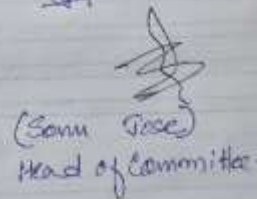 (Sonu Jose)
Head of Committee